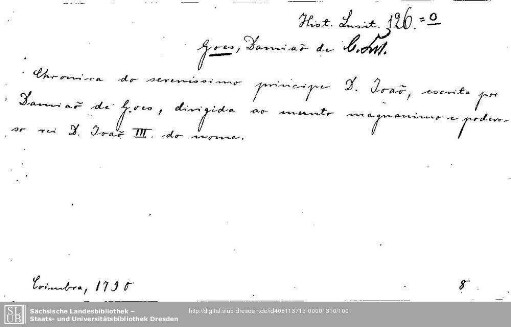 Hist. Lusit. 126.=0
Goes, Damiaõ de
Chronica do serenissimo principe D. Joaõ, escrita por
Damiaõ de Goes, dirigida ao munto magnanimo e podero-
so rei D. Joaõ III. do nome.
Coimbra, 1790
8
Sächsische Landesbibliothek –
Staats- und Universitätsbibliothek Dresden